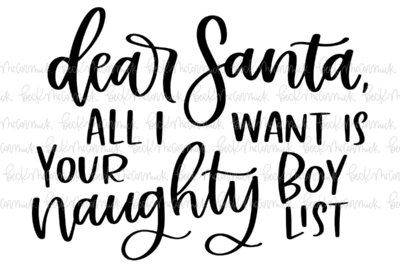 dear Santa,
ALL WANT IS
YOUR
naughty BOY
LIST